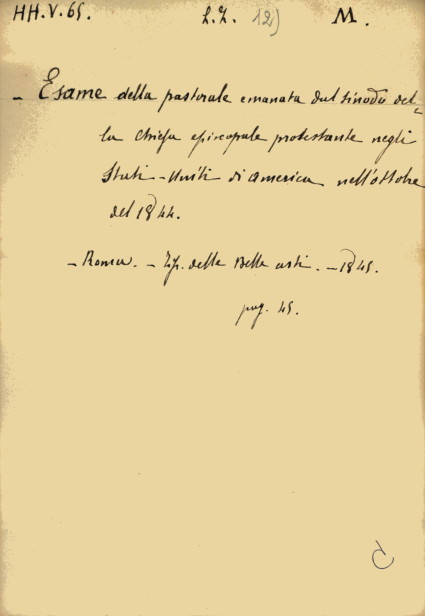 HH.V.65. L.Z. 12) M.
- Esame della pastorale emanata dal sinodo del-
la chiesa episcopale protestante negli
Stati-Uniti di America nell'ottobre
del 1844.
- Roma. - Tip. delle Belle arti. - 1845.
pag. 45.